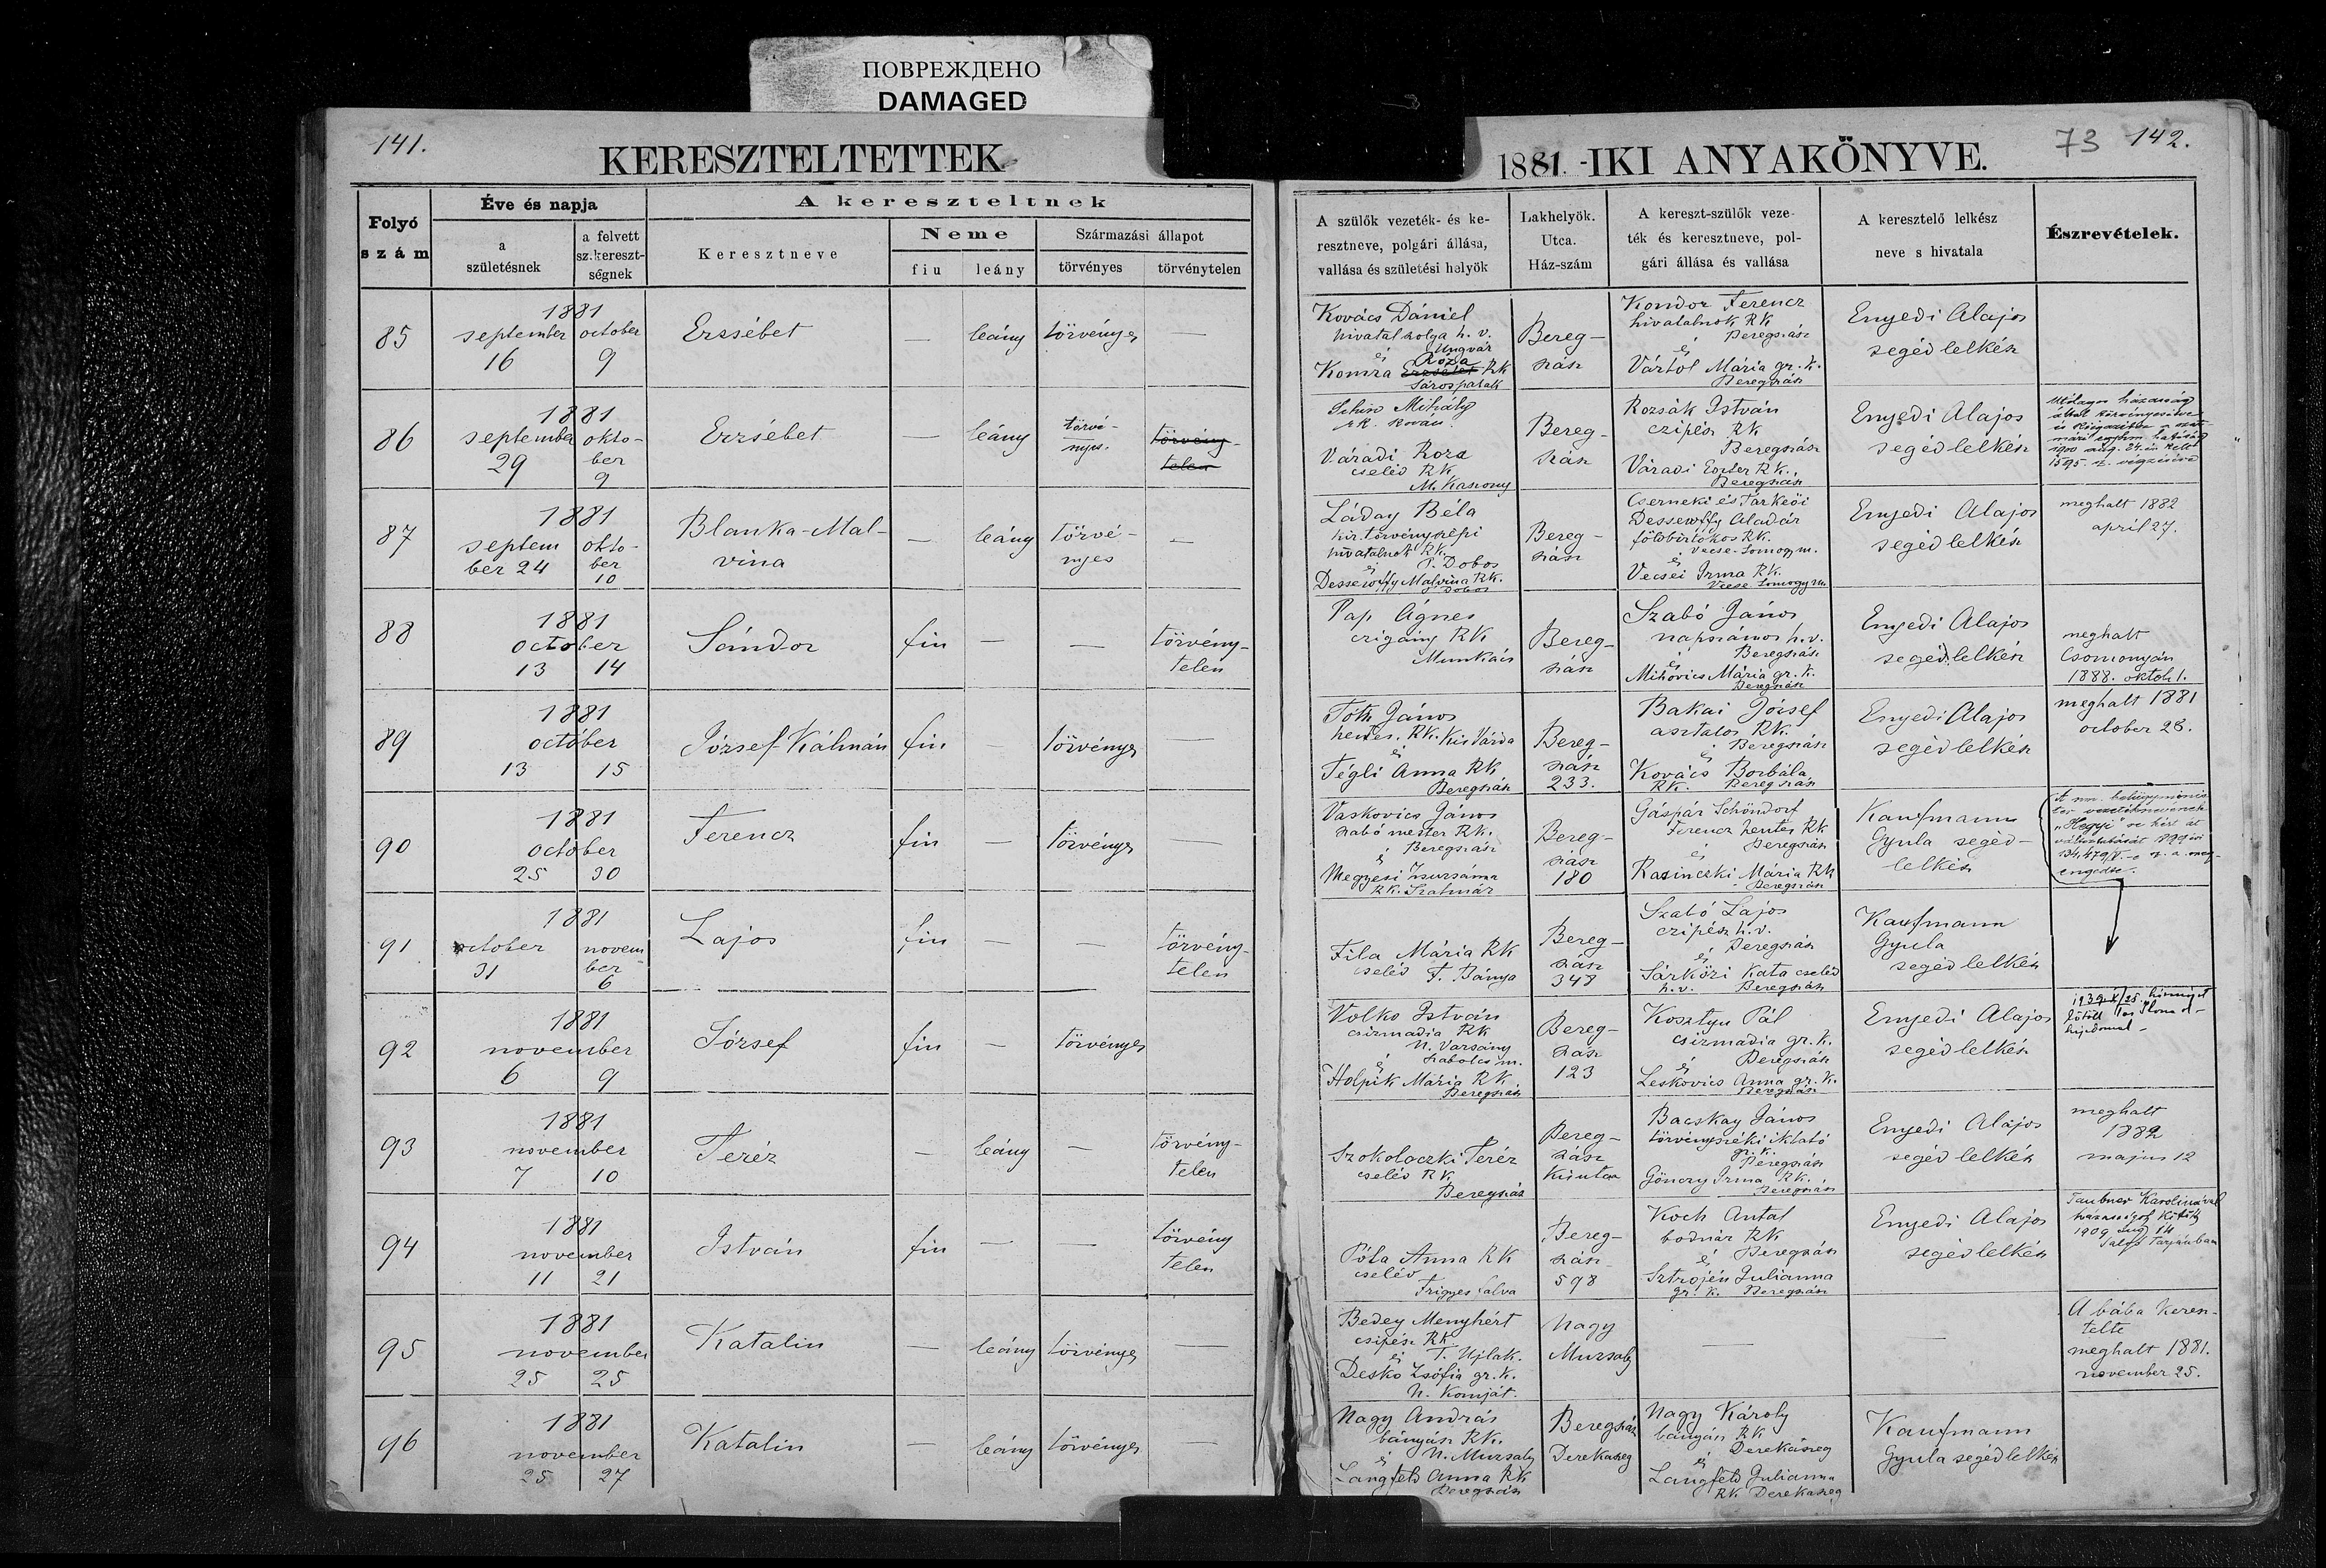 ПОВРЕЖДЕНО
DAMAGED
141.
KERESZTELTETTEK
1881. -IKI ANYAKÖNYVE.
73
142.
Folyó
szám
Éve és napja
a
születésnek
a felvett
sz.kereszt-
ségnek
A kereszteltnek
Keresztneve
Neme
fiu
leány
Származási állapot
törvényes
törvénytelen
A szülők vezeték- és ke-
resztneve, polgári állása,
vallása és születési helyök
Lakhelyök.
Utca.
Ház-szám
A kereszt-szülők veze-
ték és keresztneve, pol-
gári állása és vallása
A keresztelő lelkész
neve s hivatala
Észrevételek.
85
1881
september october
16 9
Erzsébet
—
leány
törvényes
—
Kovács Dániel
hivatalszolga h. v.
Ungvár
és Róza
Komra Erzsébet RK
Sárospatak
Bereg-
szász
Kondor Ferencz
hivatalnok RK
Beregszász
és
Vártol Mária gr. k.
Beregszász
Enyedi Alajos
segédlelkész
86
1881
septembe okto-
29 ber
9
Erzsébet
—
leány
törvé-
nyes.
törvény-
telen
Mihály
RK. kovács
Váradi Roza
cseléd RK
M. Kaszony
Bereg-
szász
Rozsák István
czipész RK
Beregszász
Váradi Eszter RK.,
Beregszász
Enyedi Alajos
segédlelkész
Utólagos házasság
által törvényesitve
1900 aug. 24-én kelt
1595. sz. végzésével
87
1881
septem okto-
ber 24 ber
10
Blanka-Mal-
vina
—
leány
törvé-
nyes
—
Láday Béla
kir. törvényszéki
hivatalnok RK.
és T. Dobos
Dessewffy Malvina RK.
Dobos
Bereg-
szász
Cserneki és Tarkeői
Dessewffy Aladár
földbirtokos RK.
Vecse. Somogy m.
és
Vecsei Irma RK.
Vecse Somogy m.
Enyedi Alajos
segédlelkész
meghalt 1882
april 27.
88
1881
october
13 14
Sándor
fiu
—
—
törvény-
telen
Pap Ágnes
czigány RK
Munkács
Bereg-
szász
Szabó János
napszámos h.v.
Beregszász
és
Mihovics Mária gr. k.
Beregszász
Enyedi Alajos
segédlelkész
meghalt
Csomonyán
1888. oktob 1.
89
1881
october
13 15
József-Kálmán
fiu
—
törvényes
—
Tóth János
hentes. RK. Kis Várda
és
Tégli Anna RK
Beregszász
Bereg-
szász
233.
Bakai József
asztalos RK.
Beregszász
és
Kovács Borbála
RK. Beregszász
Enyedi Alajos
segédlelkész
meghalt 1881
october 28.
90
1881
october
25 30
Ferencz
fiu
—
törvényes
—
Vaskovics János
szabó mester RK.
Beregszász
és
Megyesi Zsuzsánna
RK. Szatmár
Bereg-
szász
180
Gáspár Schöndorf
Ferencz hentes RK
Beregszász
és
Kazinczki Mária RK
Beregszász
Kaufmann
Gyula segéd-
lelkész
A nm. belügyminis-
ter vezetéknevének
„Hegyi"-re kért át
változtatását 1899 évi
engedte.
91
1881
october novem
31 ber
6
Lajos
fiu
—
—
törvény-
telen
Fila Mária RK
cseléd F. Bánya
Bereg-
szász
348
Szabó Lajos
czipész h.v.
Beregszász
és
Sárközi Kata cseléd
h.v. Beregszász
Kaufmann
Gyula
segédlelkész
92
1881
november
6 9
József
fiu
—
törvényes
Volko István
csizmadia RK
N. Varsány
Szabolcs m.
és
Holpik Mária RK.
Beregszász
Bereg-
szász
123
Kosztyu Pál
csizmadia gr. k.
Beregszász
és
Leskovics Anna gr. k.
Beregszász
Enyedi Alajos
segédlelkész
93
1881
november
7 10
Teréz
—
leány
—
törvény-
telen
Szokolaczki Teréz
cseléd RK.
Beregszász
Bereg-
szász
Kisutca
Bacskay János
törvényszéki iktató
gr. k.
Beregszász
Gönczy Irma RK.
Beregszász
Enyedi Alajos
segédlelkész
meghalt
1882
majus 12
94
1881
november
11 21
István
fiu
—
—
törvény
telen
Póta Anna RK
cseléd
Frigyesfalva
Bereg-
szász
598
Koch Antal
bodnár RK
és Beregszász
Sztroján Julianna
gr. k. Beregszász
Enyedi Alajos
segédlelkész
Taubner Karolinával
házasságot kötött
1909 aug 14
Salgó Tarjánban
95
1881
november
25 25
Katalin
—
leány
törvényes
—
Bedey Menyhért
csipész RK.
és T. Ujlak.
Deskó Zsófia gr. k.
N. Komját.
Nagy
Muzsaly
—
—
A bába keresz-
telte
meghalt 1881.
november 25.
96
1881
november
25 27
Katalin
—
leány
törvényes
—
Nagy András
bányász RK.
és N. Muzsaly
Langfeld Anna RK
Beregszász
Beregszász
Derekaszeg
Nagy Károly
bányász RK
Derekaszeg
és
Langfeld Julianna
RK. Derekaszeg
Kaufmann
Gyula segédlelkész